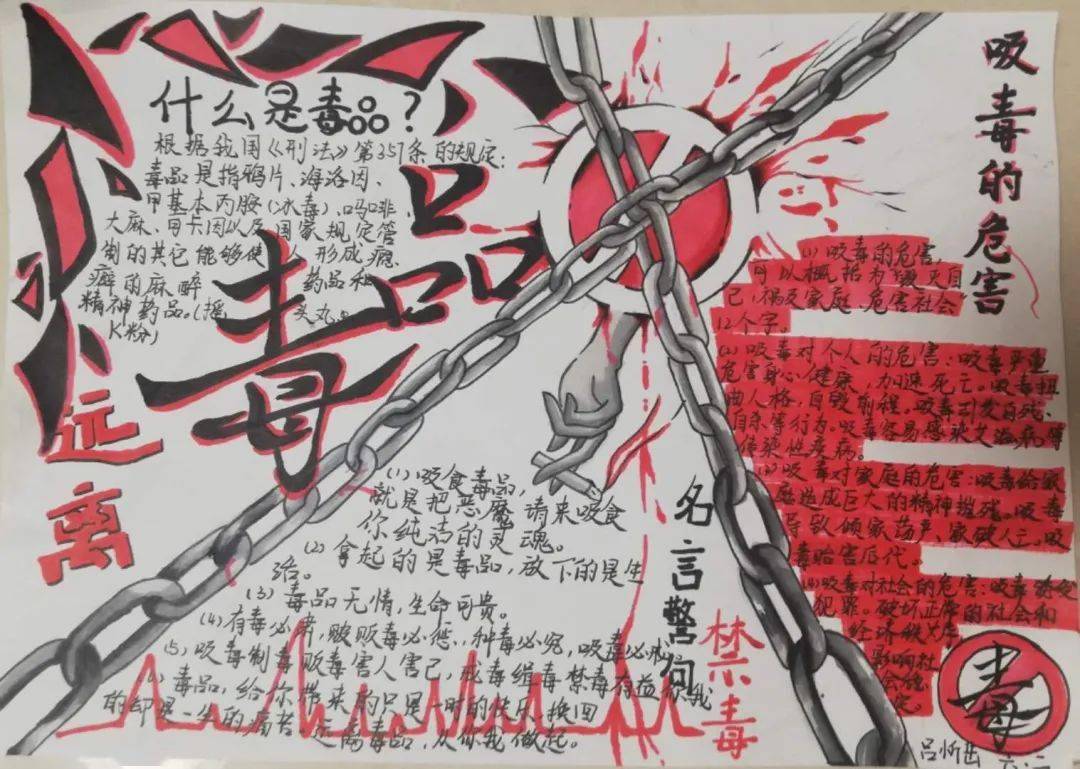 什么是毒品？
根据我国《刑法》第357条的规定：
毒品是指鸦片、海洛因、
甲基本丙胺（冰毒）、吗啡、
大麻、可卡因以及国家规定管
制的其它能够使人形成瘾
癖的麻醉药品和
精神药品。（摇头丸。
K粉）
远离
毒品
吸毒的危害
(1) 吸毒的危害，
可以概括为：毁灭自
己，祸及家庭，危害社会
12个字。
(2) 吸毒对个人的危害：吸毒严重
危害身心健康，加速死亡。吸毒扭
曲人格，自毁前程。吸毒引发自残、
自杀等行为。吸毒容易感染艾滋病等
传染性疾病。
吸毒对家庭的危害：吸毒给家
庭造成巨大的精神摧残。吸毒
导致倾家荡产、家破人亡。吸
毒贻害后代。
(4) 吸毒对社会的危害：吸毒诱发
犯罪。破坏正常的社会和
经济秩序
影响社
会稳
定。
名言警句
(1) 吸食毒品，
就是把恶魔请来吸食
你纯洁的灵魂。
(2) 拿起的是毒品，放下的是生
活。
(3) 毒品无情，生命可贵。
(4) 有毒必肃，贩毒必惩，种毒必究，吸毒必戒。
(5) 吸毒制毒贩毒害人害己，戒毒缉毒禁毒有益你我
毒品，给你带来的只是一时的快乐，换回
的却是一生的痛苦。远离毒品，从你我做起。
禁毒
毒
吕忻
六.二